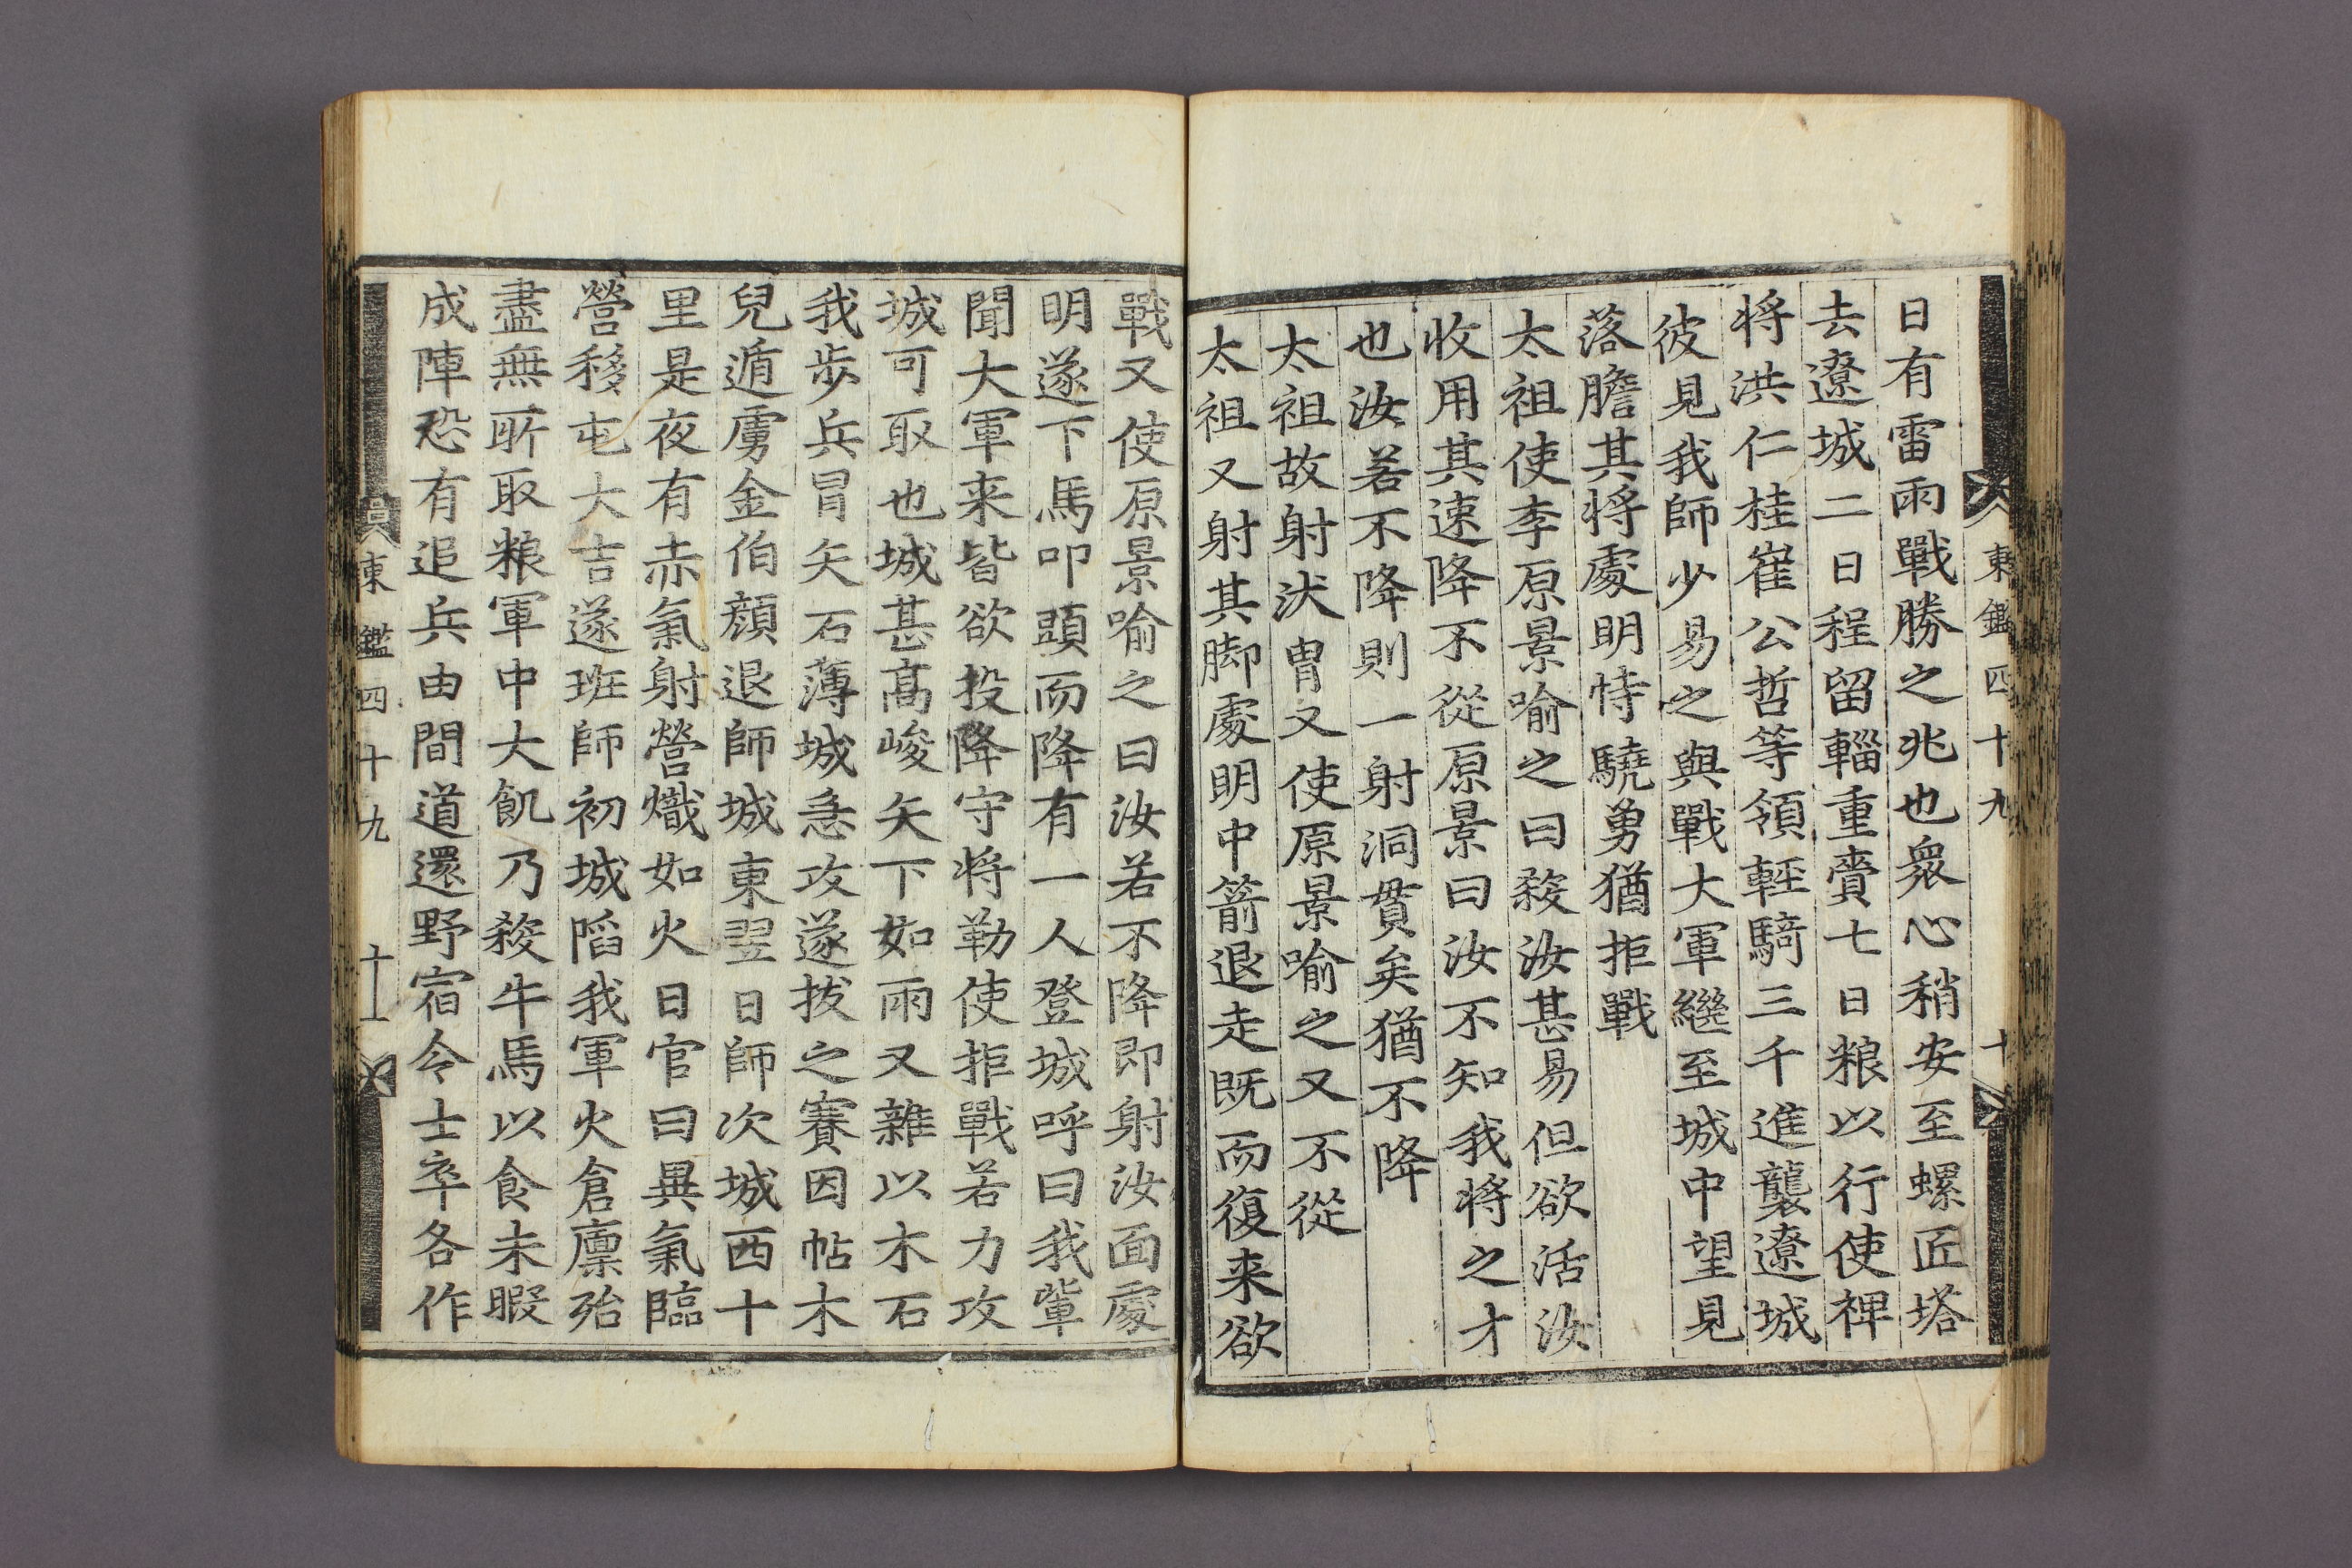 東鑑四十九 十
日有雷雨戰勝之兆也衆心稍安至螺匠塔
去遼城二日程留輜重賫七日粮以行使裨
将洪仁桂崔公哲等領輕騎三千進襲遼城
彼見我師少易之與戰大軍繼至城中望見
落膽其将處明恃驍勇猶拒戰
太祖使李原景喻之曰殺汝甚易但欲活汝
收用其速降不從原景曰汝不知我将之才
也汝若不降則一射洞貫矣猶不降
太祖故射洑冑又使原景喻之又不從
太祖又射其脚處明中箭退走既而復来欲
戰又使原景喻之曰汝若不降即射汝面處
明遂下馬叩頭而降有一人登城呼曰我輩
聞大軍来皆欲投降守将勒使拒戰若力攻
城可取也城甚髙峻矢下如雨又雜以木石
我步兵冒矢石薄城急攻遂拔之賽因帖木
兒遁虜金伯顔退師城東翌日師次城西十
里是夜有赤氣射營熾如火日官曰異氣臨
營移屯大吉遂班師初城陷我軍火倉廩殆
盡無所取粮軍中大飢乃殺牛馬以食未暇
成陣恐有追兵由間道還野宿令士卒各作
東鑑四十九 十一